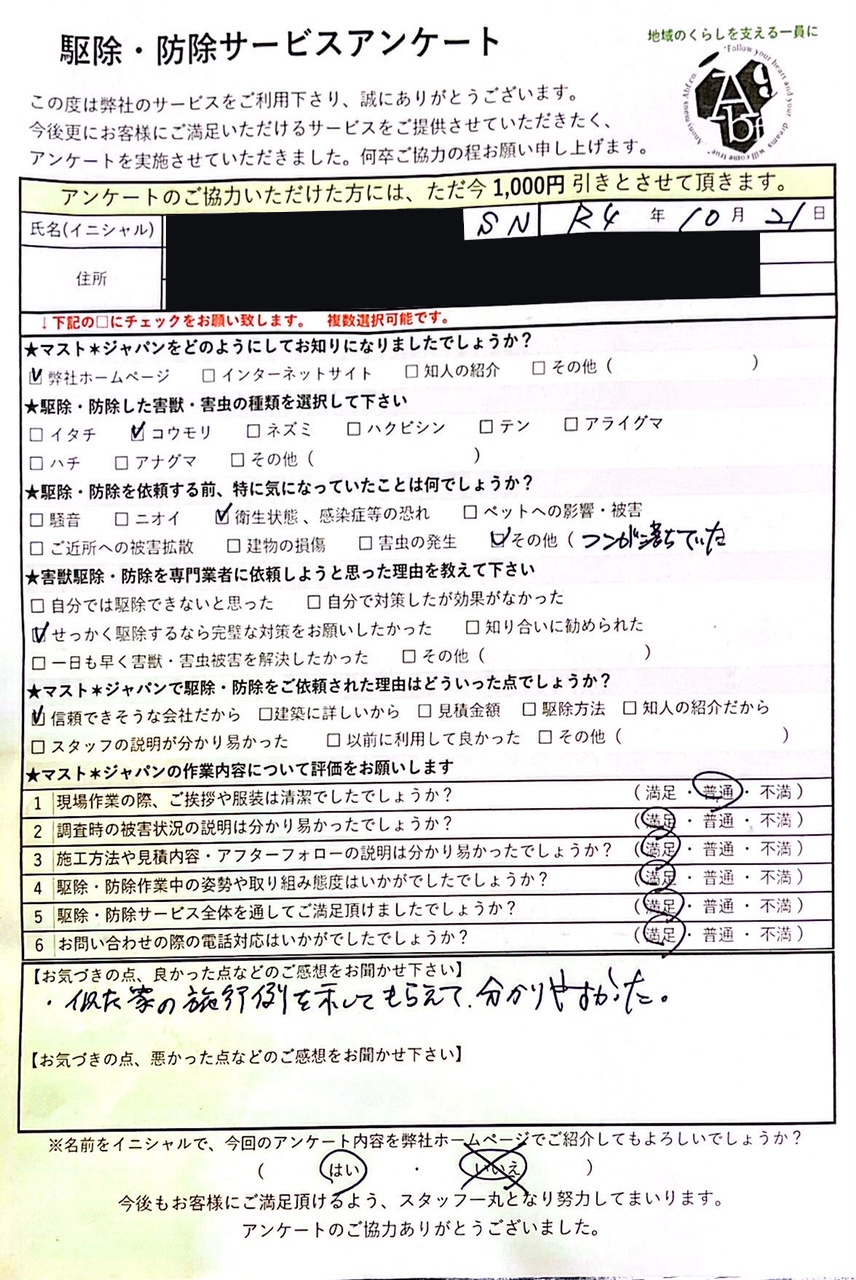 駆除・防除サービスアンケート
地域のくらしを支える一員に
"Follow your heart and your dreams will come true"
Abf
この度は弊社のサービスをご利用下さり、誠にありがとうございます。
今後更にお客様にご満足いただけるサービスをご提供させていただきたく、
アンケートを実施させていただきました。何卒ご協力の程お願い申し上げます。
アンケートのご協力いただけた方には、ただ今1,000円引きとさせて頂きます。
氏名(イニシャル) SN R4 年 10 月 21 日
住所
↓下記の□にチェックをお願い致します。 複数選択可能です。
★マスト＊ジャパンをどのようにしてお知りになりましたでしょうか？
☑弊社ホームページ □インターネットサイト □知人の紹介 □その他（ ）
★駆除・防除した害獣・害虫の種類を選択して下さい
□イタチ ☑コウモリ □ネズミ □ハクビシン □テン □アライグマ
□ハチ □アナグマ □その他（ ）
★駆除・防除を依頼する前、特に気になっていたことは何でしょうか？
□騒音 □ニオイ ☑衛生状態、感染症等の恐れ □ペットへの影響・被害
□ご近所への被害拡散 □建物の損傷 □害虫の発生 ☑その他（フンが落ちていた
★害獣駆除・防除を専門業者に依頼しようと思った理由を教えて下さい
□自分では駆除できないと思った □自分で対策したが効果がなかった
☑せっかく駆除するなら完璧な対策をお願いしたかった □知り合いに勧められた
□一日も早く害獣・害虫被害を解決したかった □その他（ ）
★マスト＊ジャパンで駆除・防除をご依頼された理由はどういった点でしょうか？
☑信頼できそうな会社だから □建築に詳しいから □見積金額 □駆除方法 □知人の紹介だから
□スタッフの説明が分かり易かった □以前に利用して良かった □その他（ ）
★マスト＊ジャパンの作業内容について評価をお願いします
1 現場作業の際、ご挨拶や服装は清潔でしたでしょうか？ （満足・普通・不満）
2 調査時の被害状況の説明は分かり易かったでしょうか？ （満足・普通・不満）
3 施工方法や見積内容・アフターフォローの説明は分かり易かったでしょうか？ （満足・普通・不満）
4 駆除・防除作業中の姿勢や取り組み態度はいかがでしたでしょうか？ （満足・普通・不満）
5 駆除・防除サービス全体を通してご満足頂けましたでしょうか？ （満足・普通・不満）
6 お問い合わせの際の電話対応はいかがでしたでしょうか？ （満足・普通・不満）
【お気づきの点、良かった点などのご感想をお聞かせ下さい】
・似た家の施行例を示してもらえて、分かりやすかった。
【お気づきの点、悪かった点などのご感想をお聞かせ下さい】
※名前をイニシャルで、今回のアンケート内容を弊社ホームページでご紹介してもよろしいでしょうか？
（ はい ・ いいえ ）
今後もお客様にご満足頂けるよう、スタッフ一丸となり努力してまいります。
アンケートのご協力ありがとうございました。